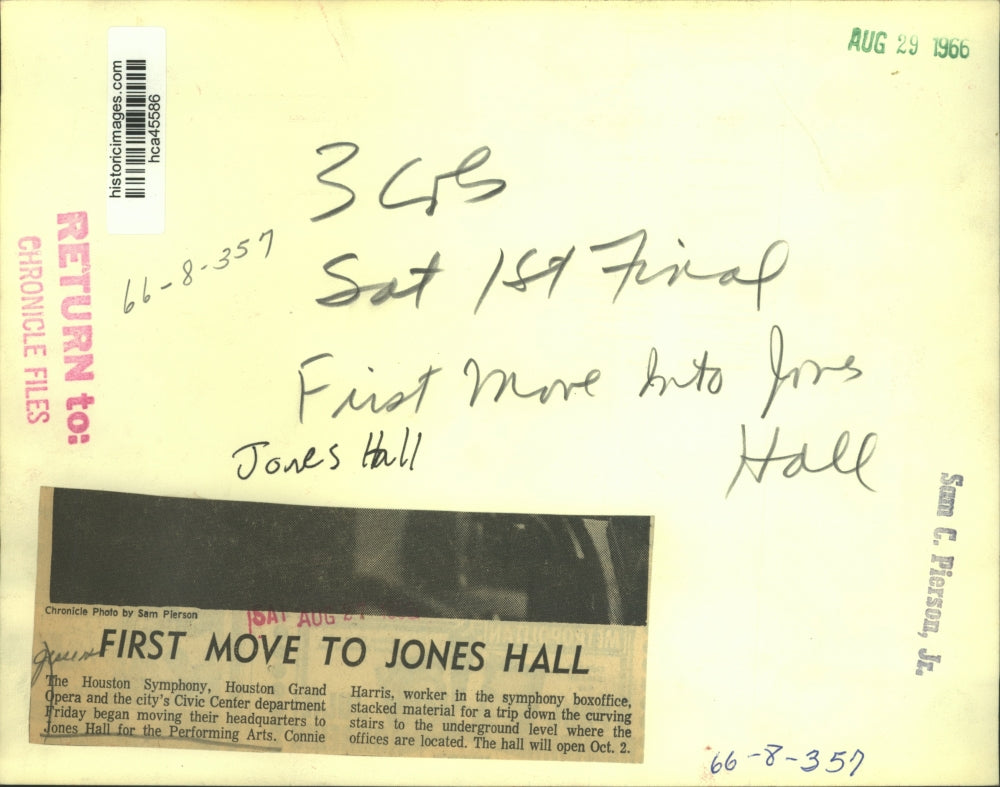 AUG 29 1966
historicimages.com
hca45586
3 Cols
Sat 1st Final
66-8-357
RETURN to:
CHRONICLE FILES
First Move Into Jones
Hall
Jones Hall
Sam C. Pierson, Jr.
Chronicle Photo by Sam Pierson
SAT AUG
FIRST MOVE TO JONES HALL
The Houston Symphony, Houston Grand
Opera and the city's Civic Center department
Friday began moving their headquarters to
Jones Hall for the Performing Arts. Connie
Harris, worker in the symphony boxoffice,
stacked material for a trip down the curving
stairs to the underground level where the
offices are located. The hall will open Oct. 2.
66-8-357